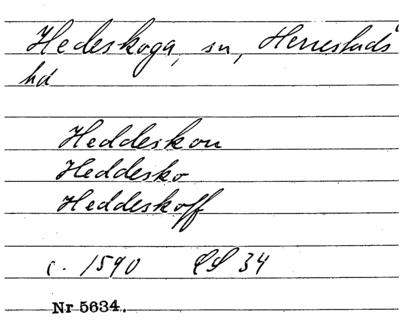 Hedeskoga, sn, Herrestads
hd
Heddeskou
Heddesko
Heddeskoff
c. 1590 LS 34
Nr 5634.